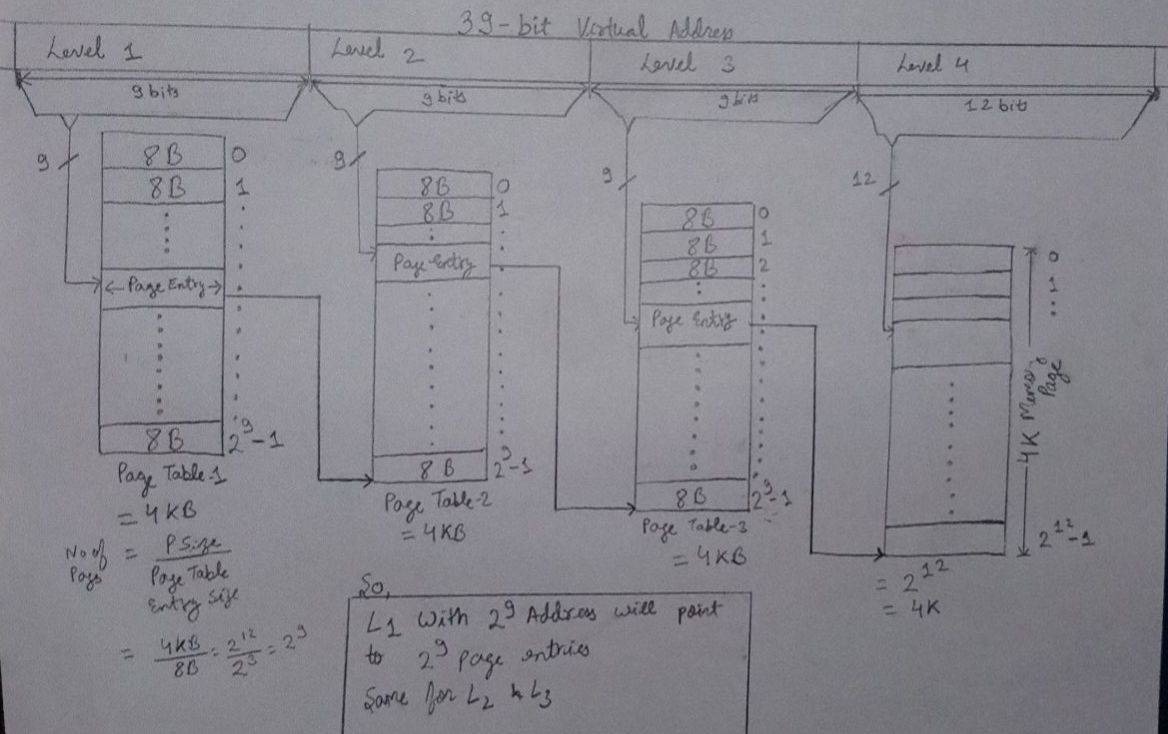 39-bit Virtual Address
Level 1
Level 2
Level 3
Level 4
9 bits
9 bits
9 bits
12 bits
9
9
9
12
8B 0
8B 1
Page Entry
8B 2^9-1
Page Table-1
= 4KB
No of Pags = P Size / Page Table Entry Size
= 4KB/8B = 2^12/2^3 = 2^9
8B 0
8B 1
Page Entry
8B 2^9-1
Page Table-2
= 4KB
8B 0
8B 1
8B 2
Page Entry
8B 2^9-1
Page Table-3
= 4KB
0
1
4K Memory Page
2^12-1
= 2^12
= 4K
So,
L1 With 2^9 Address will point
to 2^9 page entries
Same for L2 & L3